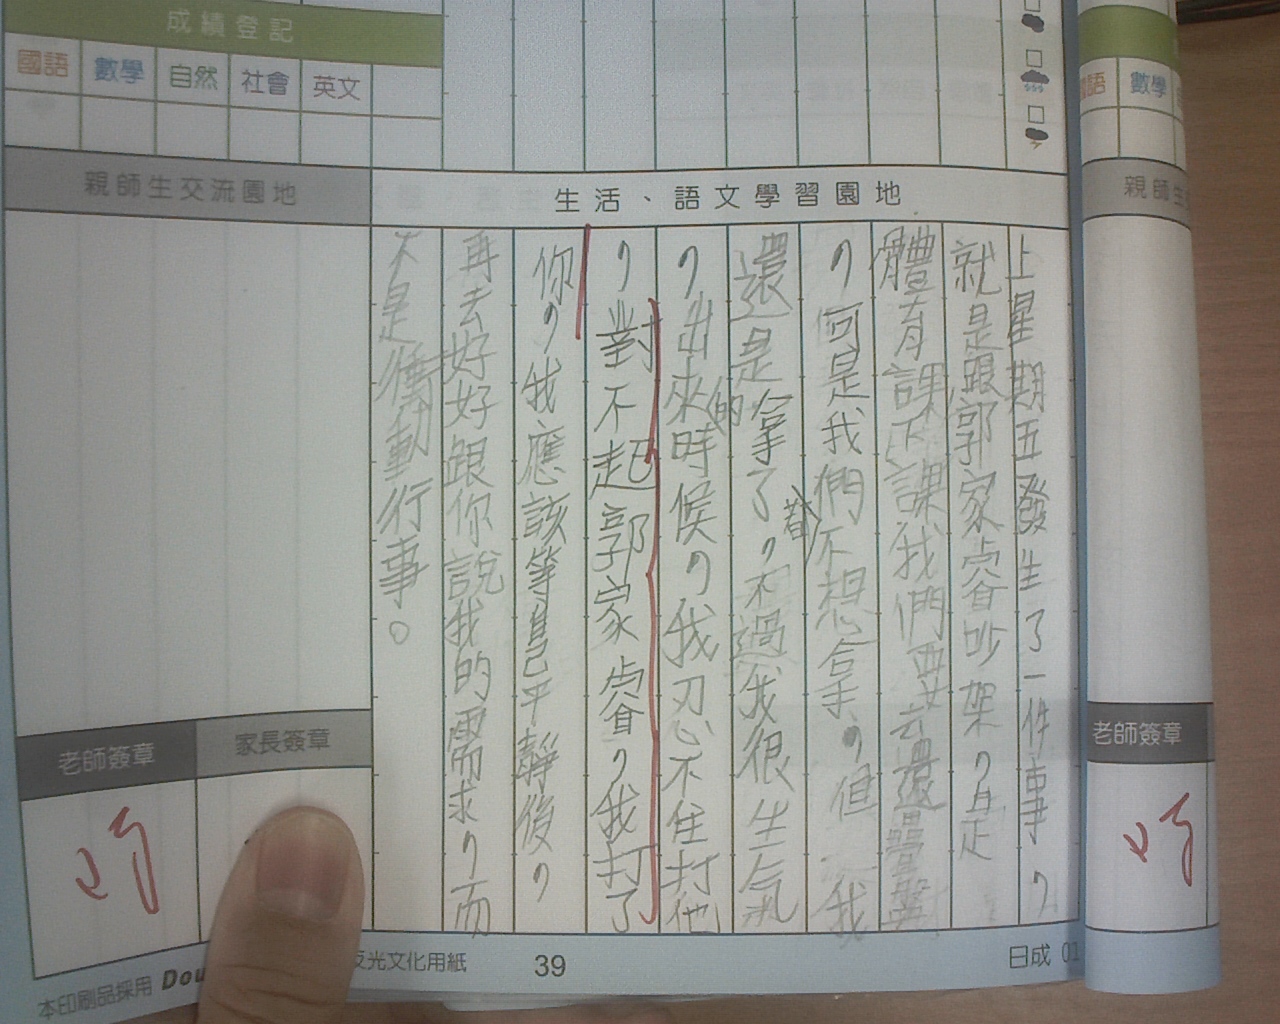 成績登記
國語 數學 自然 社會 英文
親師生交流園地
生活、語文學習園地
上星期五發生了一件事,
就是跟郭家睿吵架,是
體育課下課我們要去還壘盤
,何是我們不想拿,但我
還是拿了,不過我很生氣
,出來的時候,我忍不住打他
,對不起郭家睿,我打了
你,我應該等自己平靜後,
再去好好跟你說我的需求,而
不是衝動行事。
老師簽章
家長簽章
本印刷品採用 Dou
反光文化用紙
39
日成 01
國語 數學
親師生
老師簽章